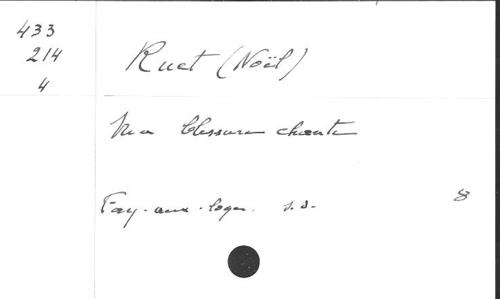 433
214
4
Ruet (Noël)
Ma blessure chante
Fay-aux-Loges. s.d. 8